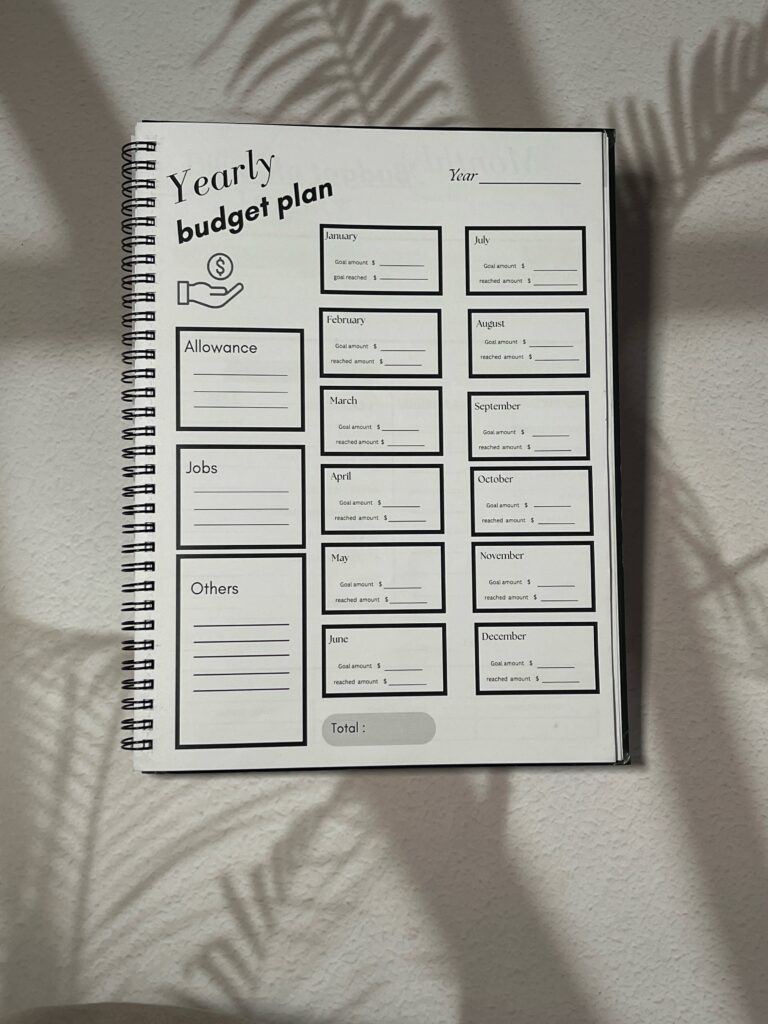 Yearly
budget plan
Year
$
Allowance
Jobs
Others
January
Goal amount $
goal reached $
February
Goal amount $
reached amount $
March
Goal amount $
reached amount $
April
Goal amount $
reached amount $
May
Goal amount $
reached amount $
June
Goal amount $
reached amount $
Total :
July
Goal amount $
reached amount $
August
Goal amount $
reached amount $
September
Goal amount $
reached amount $
October
Goal amount $
reached amount $
November
Goal amount $
reached amount $
December
Goal amount $
reached amount $